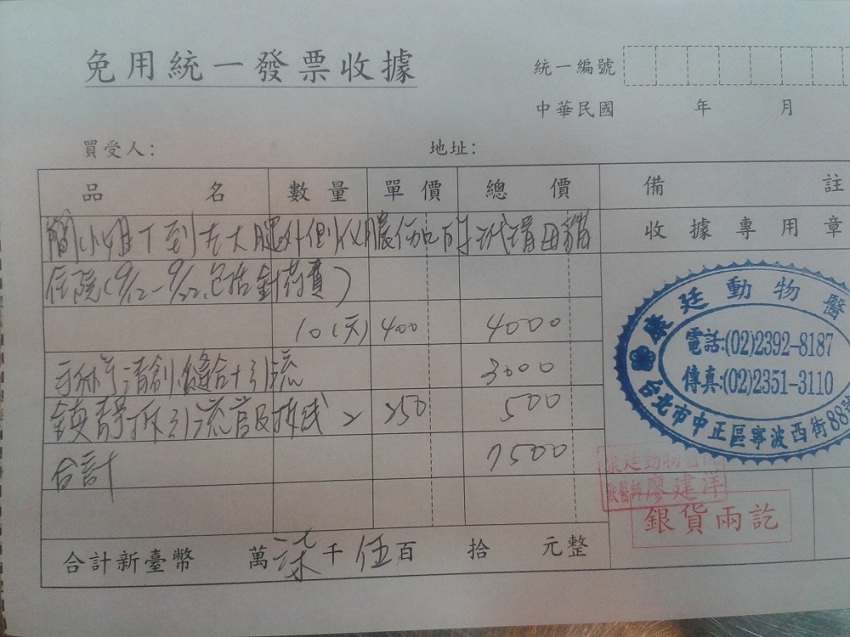 免用統一發票收據
統一編號
中華民國 年 月
買受人： 地址：
品名 數量 單價 總價 備註
收據專用章
住院(9/12-9/22,包括針葯費)
10(天) 400 4000
手術清創,縫合+引流 3000
鎮靜拆引流管及拆線 2 250 500
合計 7500
合計新臺幣 萬柒千伍百 拾 元整
康廷動物醫
電話:(02)2392-8187
傳真:(02)2351-3110
台北市中正區寧波西街88號
獸醫師廖建洋
銀貨兩訖